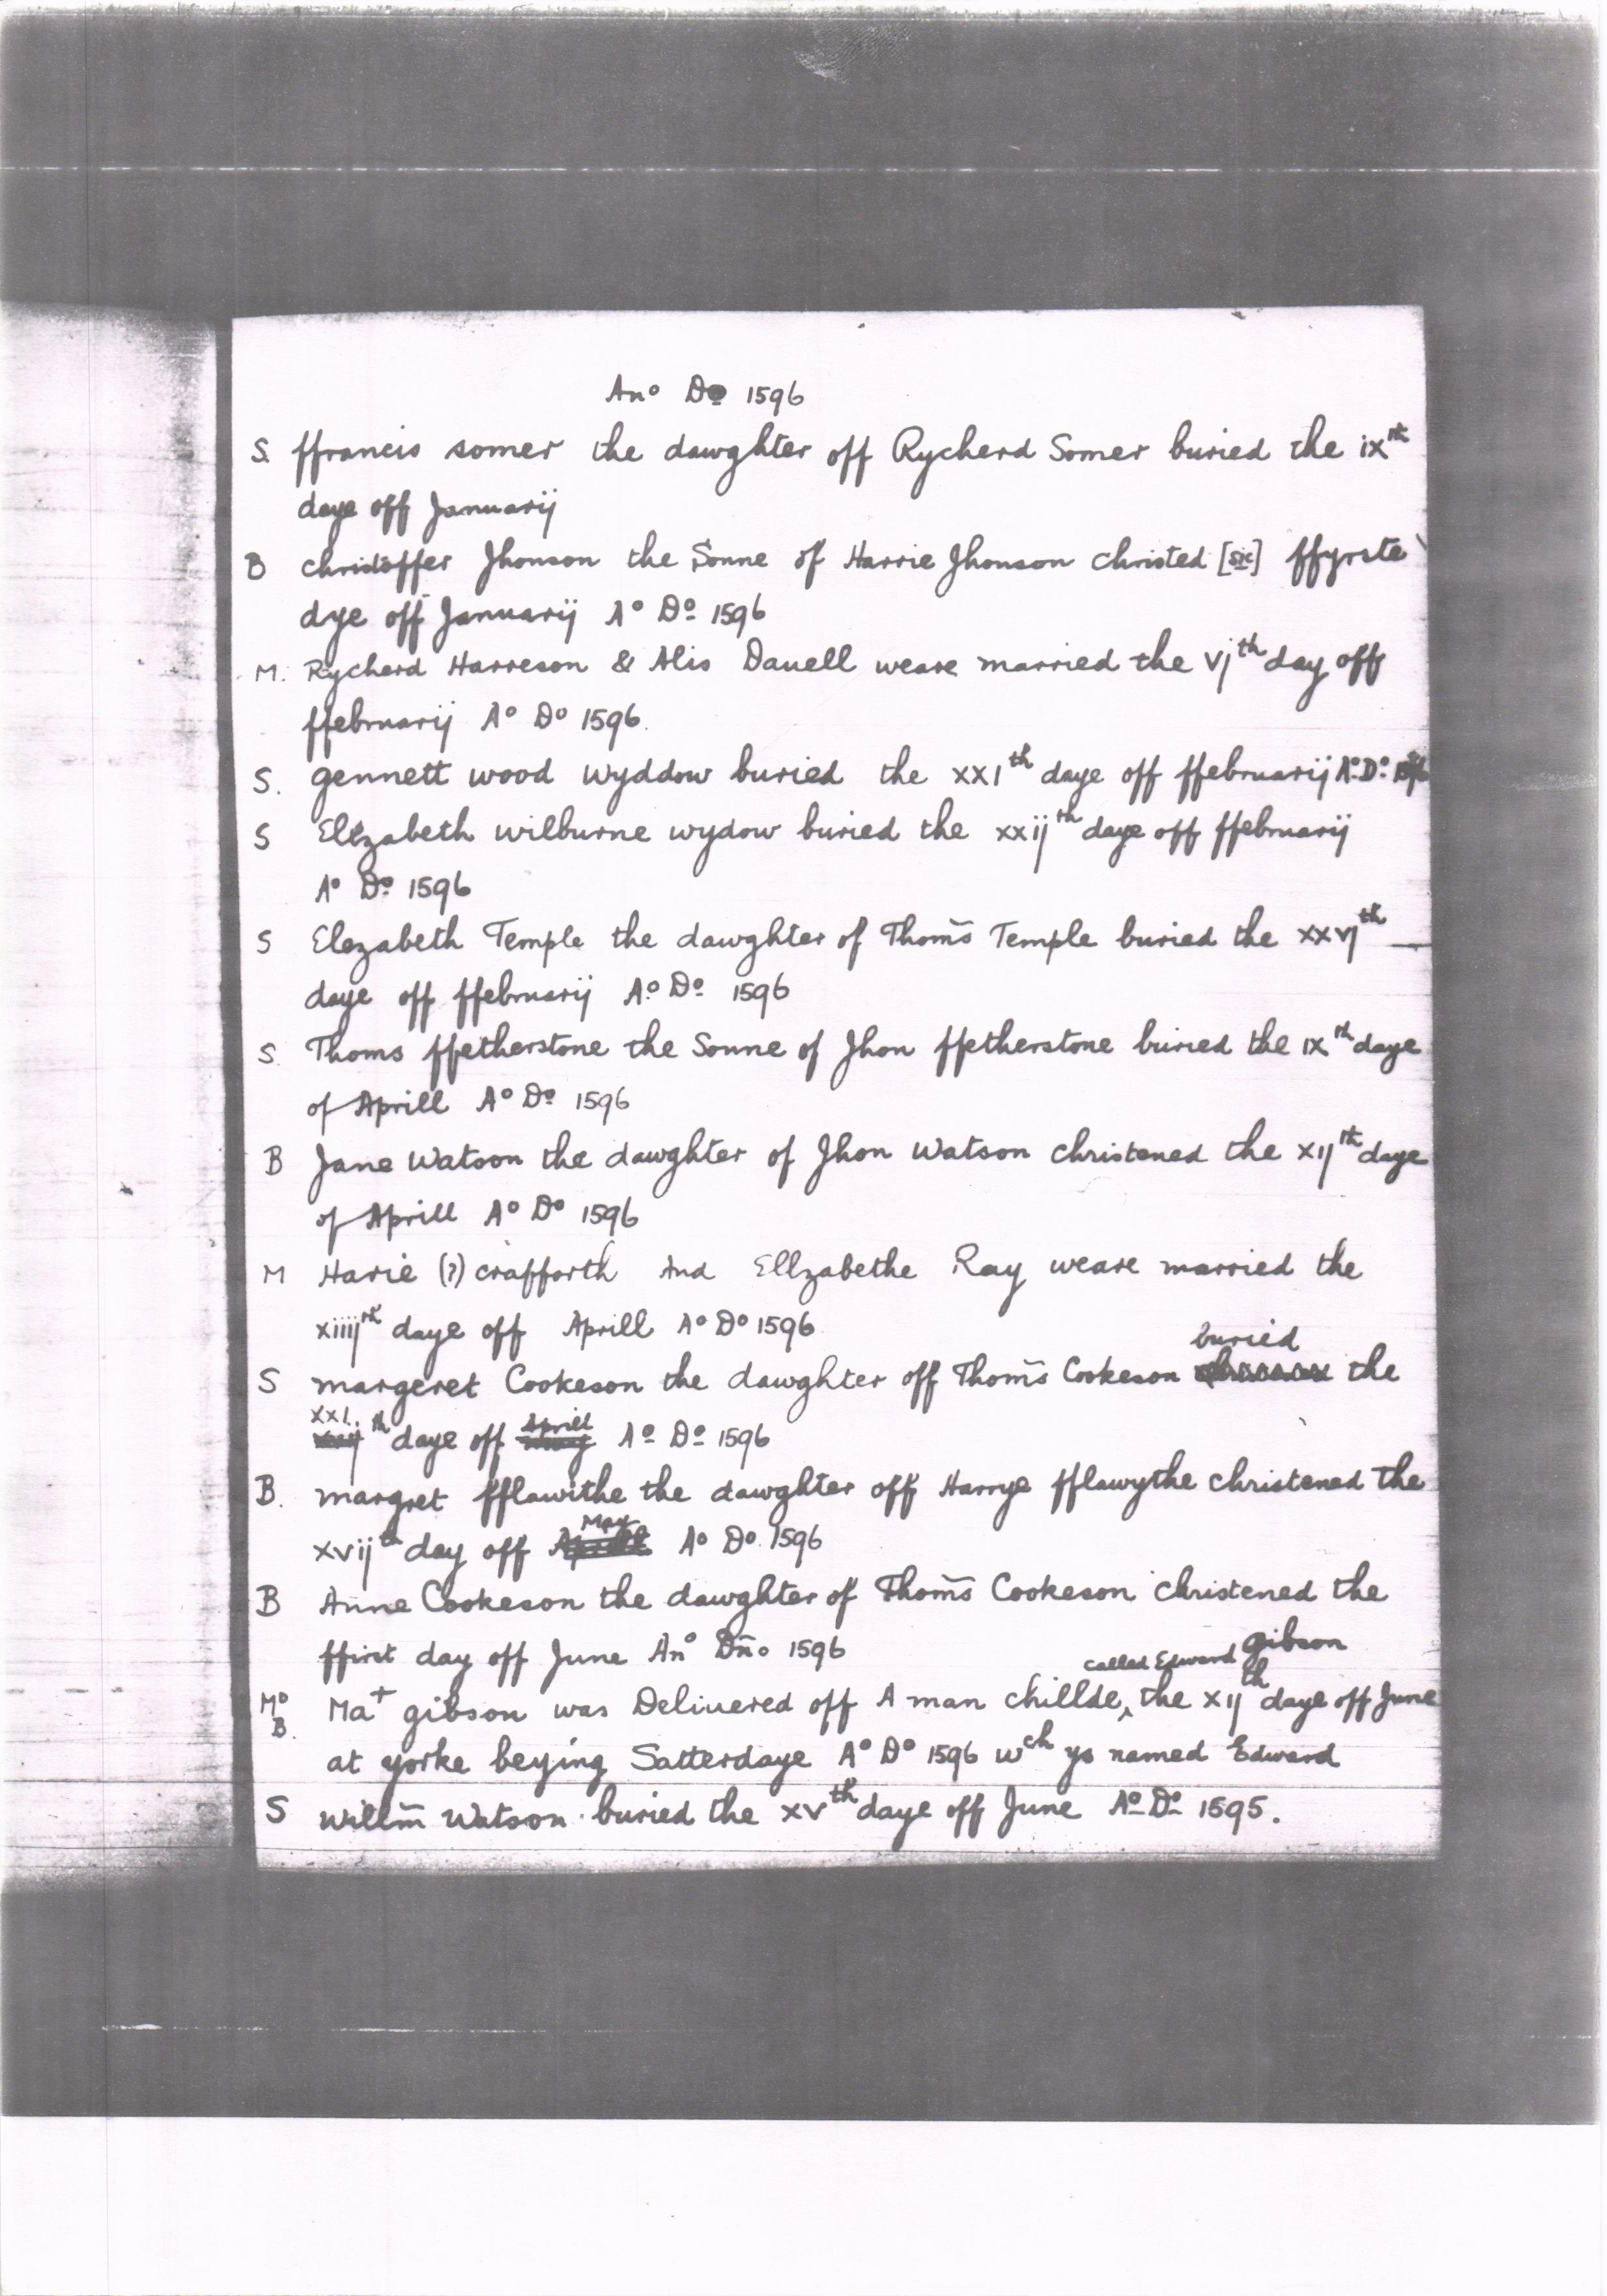 Anº Dº 1596
S. ffrancis somer the dawghter off Rycherd Somer buried the ixth
daye off Januarij
B christoffer Jhonson the Sonne of Harrie Jhonson christed [sic] ffyrste
dye off Januarij Aº Dº 1596
M. Rycherd Harreson & Alis Dauell weare married the vjth day off
ffebruarij Aº Dº 1596.
S. gennett wood wyddow buried the xxIth daye off ffebruarij Aº Dº
S Elizabeth wilburne wydow buried the xxijth daye off ffebruarij
Aº Dº 1596
S Elezabeth Temple the dawghter of Thom̃s Temple buried the xxvjth
daye off ffebruarij Aº Dº 1596
S. Thoms ffetherstone the Sonne of Jhon ffetherstone buried the ixth daye
of Aprill Aº Dº 1596
B Jane Watson the dawghter of Jhon Watson christened the xijth daye
of Aprill Aº Dº 1596
M Harie (?) crafforth And Ellzabethe Ray weare married the
xiiijth daye off Aprill Aº Dº 1596
buried
S margeret Cookeson the dawghter off Thom̃s Cookeson the
xxI. Aprill
th daye off Aº Dº 1596
B. margret fflawithe the dawghter off Harrye fflawythe christened the
May
xvijth day off Aprill Aº Dº 1596
B Anne Cookeson the dawghter of Thom̃s Cookeson christened the
ffirst day off June Anº Dñº 1596
called Edward gibson
Mº B. Ma+ gibson was Deliuered off A man chillde, the xijth daye off June
at yorke beying Satterdaye Aº Dº 1596 wch ys named Edward
S Willm̃ Watson buried the xvth daye off June Aº Dº 1595.